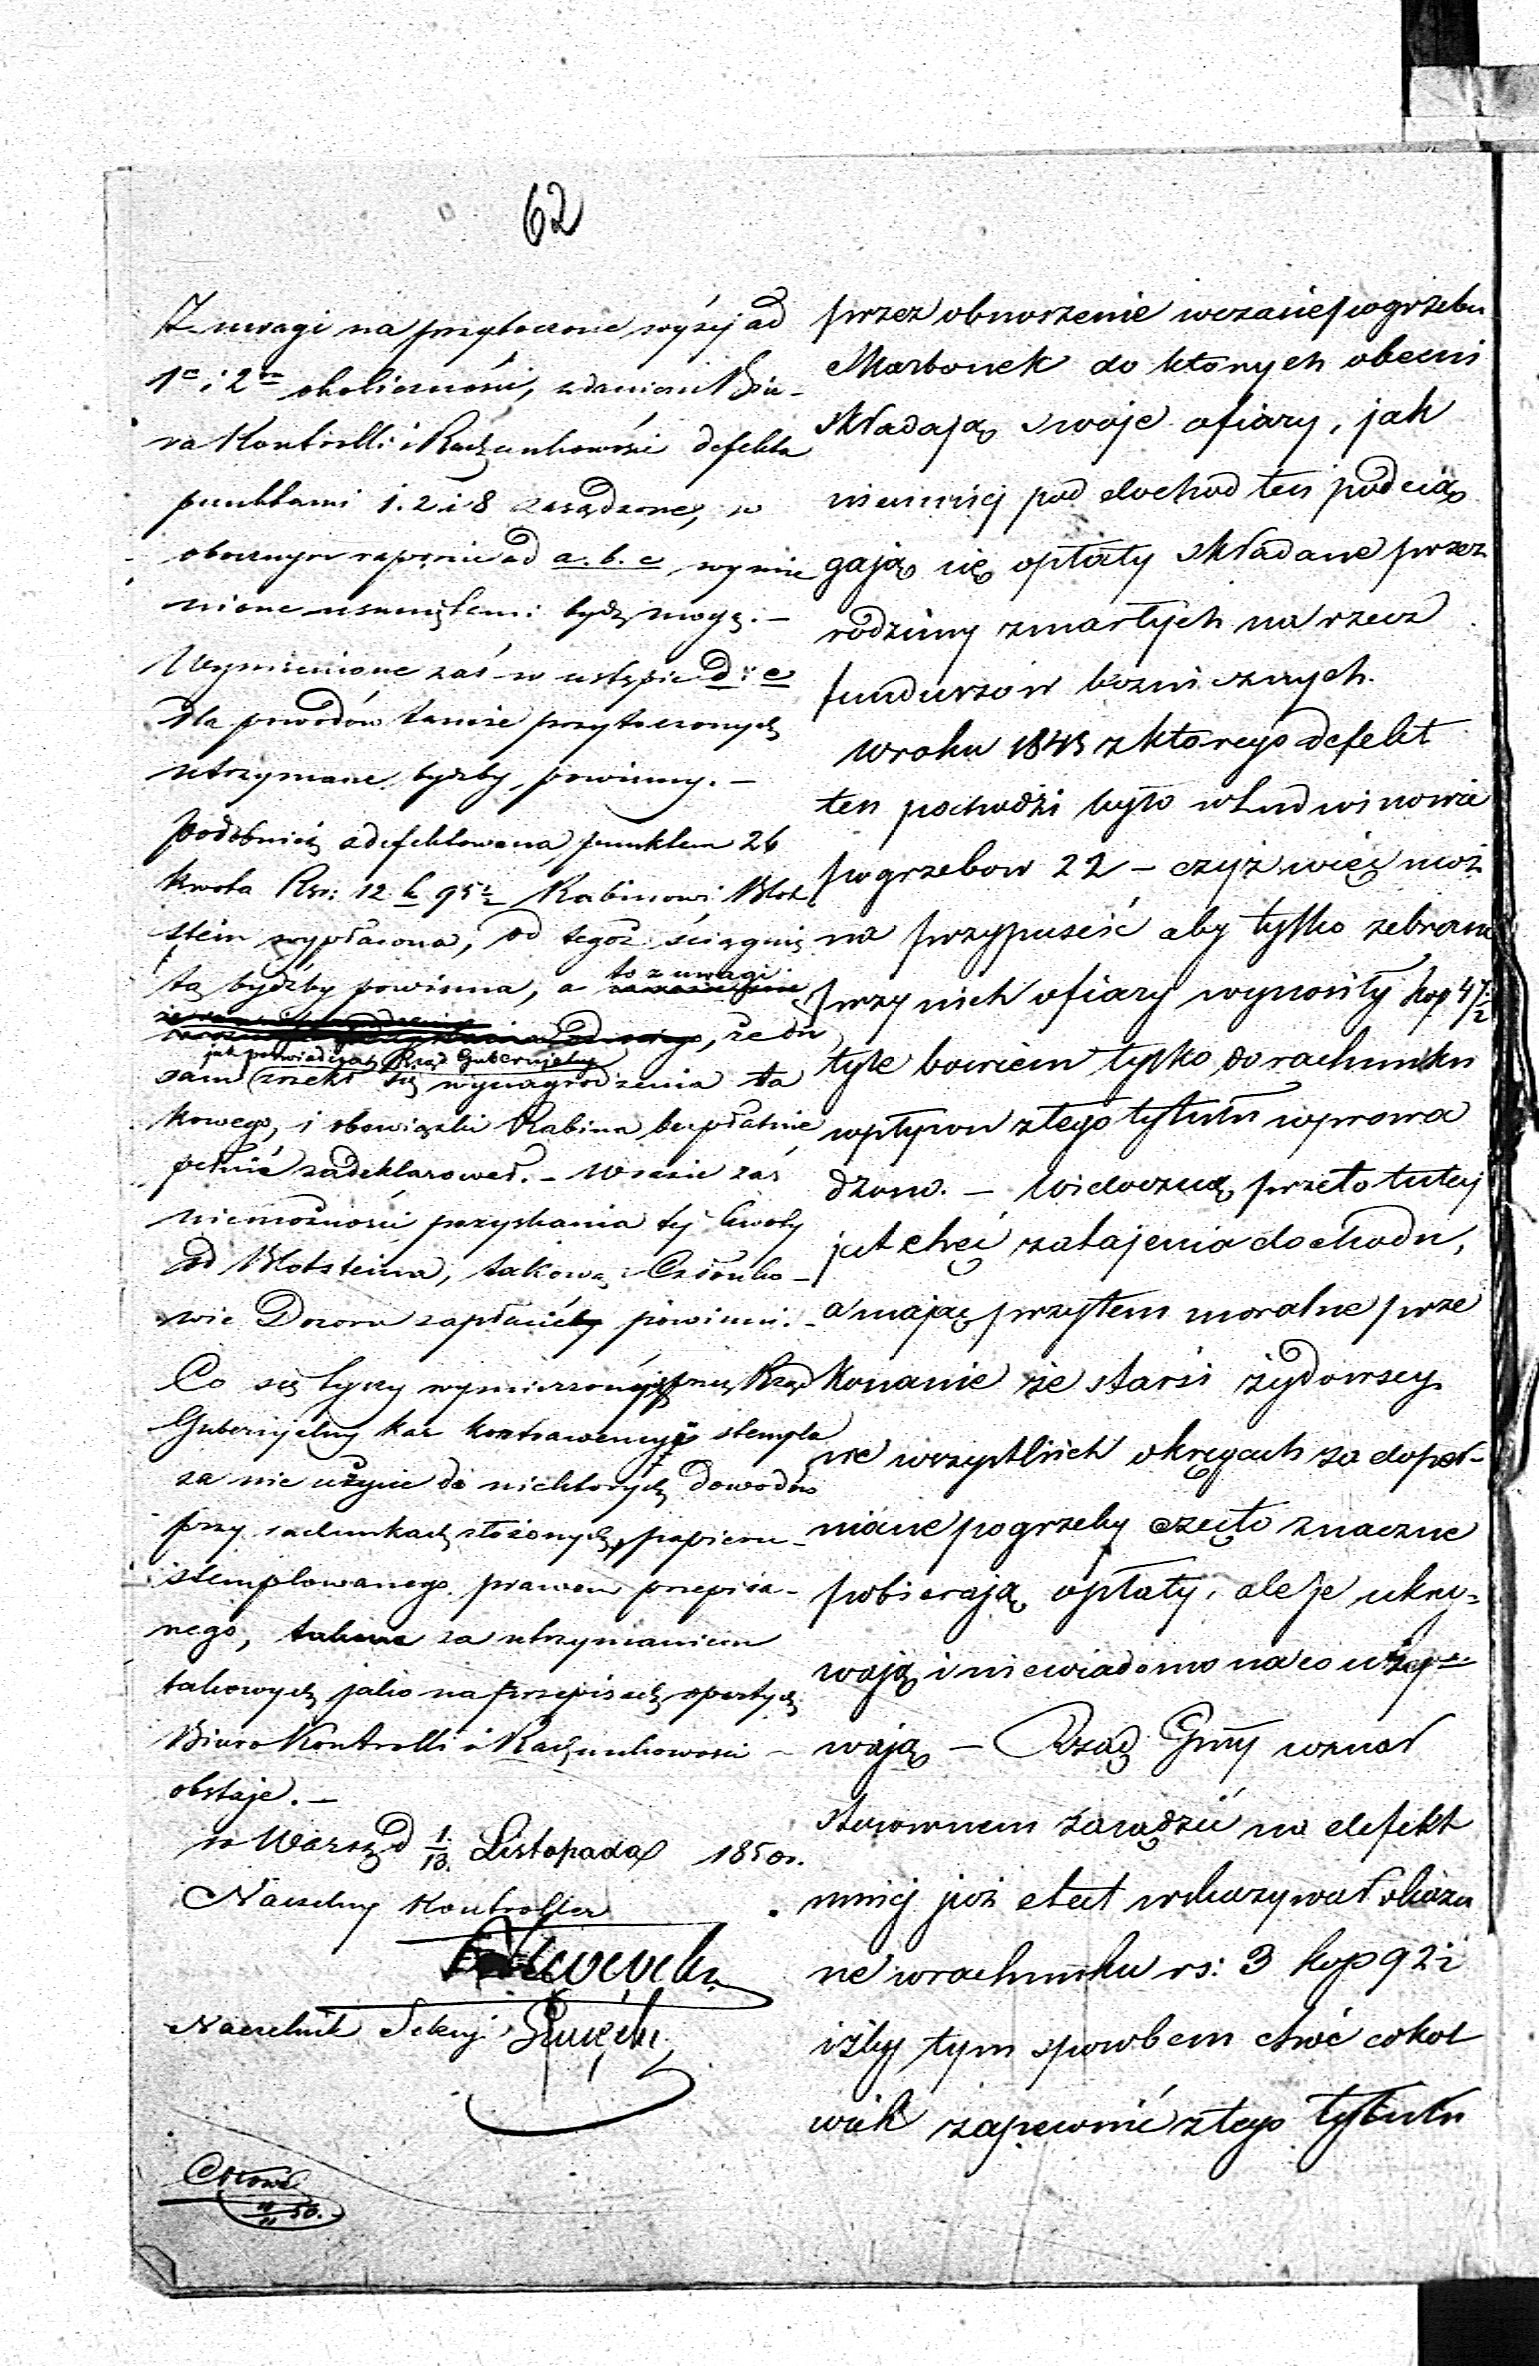 62
Z uwagi na przytoczone wyżej ad
1e i 2re okoliczności, zdaniem Biu-
ra Kontrolli i Rachunkowości defekta
punktami 1. 2 i 8 zarządzone, w
obocznym raporcie ad a. b. c wymie
nione usuniętemi bydź mogą. –
Wymienione zaś w ustępie d i e
dla powodów tamże przytoczonych
utrzymane bydźby powinny. –
Podobnież zdefektowana punktem 26
kwota Rsr: 12 k 95½ Rabinowi Blot
stein wypłacona, od tegoż ściągnię
tą bydźby powinna, a to z uwagi
, że on
jak poświadcza Rząd Gubernijalny
sam zrzekł się wynagrodzenia ta
kowego, i obowiązki Rabina bezpłatnie
pełnić zadeklarował. – W razie zaś
niemożności pozyskania tej kwoty
od Blotsteina, takową Członko-
wie Dozoru zapłacićby powinni. –
Co się tyczy wymierzonych przez Rząd
Gubernijalny kar kontrawencyi stempla
za nie użycie do niektórych dowodów
przy rachunkach złożonych, papieru
stemplowanego prawem przepisa-
nego, za utrzymaniem
takowych jako na przepisach opartych
Biuro Kontrolli i Rachunkowości –
obstaje. –
w Warsz d 1/13. Listopada 1850 r.
Naczelny Kontroller
Naczelnik Sekcyi
50.
przez obnoszenie wczasie pogrzebu
Skarbonek do których obecni
składają swoje ofiary, jak
niemniej pod dochod ten podcią
gają się opłaty składane przez
rodziny zmarłych na rzecz
funduszow bozniczych.
wroku 1843 z ktorego defekt
ten pochodzi było w Ludwinowie
pogrzebow 22 – czyż więc moż
na przypuścić aby tylko zebrane
przy nich ofiary wynosiły kop 47½
tyle bowiem tylko do rachunku
wpływu ztego tytułu wprowa
dzono. – Widoczną przeto tutaj
jest chęć zatajenia dochodu,
a mając przytem moralne prze
konanie że starsi żydowscy
we wszystkich okręgach za dopeł-
niane pogrzeby często znaczne
pobierają opłaty, ale je ukry-
wają i niewiadomo na co używy-
wają – Rząd Gmy uznał
stosownem zarządzić na defekt
mniej już etat wskazywał okaza
ne wrachunku rs: 3 kop 92½
iżby tym sposobem choć cokol
wiek zapewnić ztego tytułu